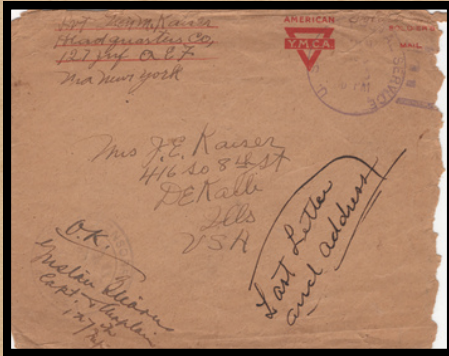 Kaiser
Headquarters Co,
127 Inf A E F
Via New York
AMERICAN
Y.M.C.A.
SOLDIERS
MAIL
U. S.
SERVICE
Mrs J.E. Kaiser
416 So 8th St
DeKalb
Ills
USA
Last Letter
and address
O.K.
Capt. & Chaplain
127